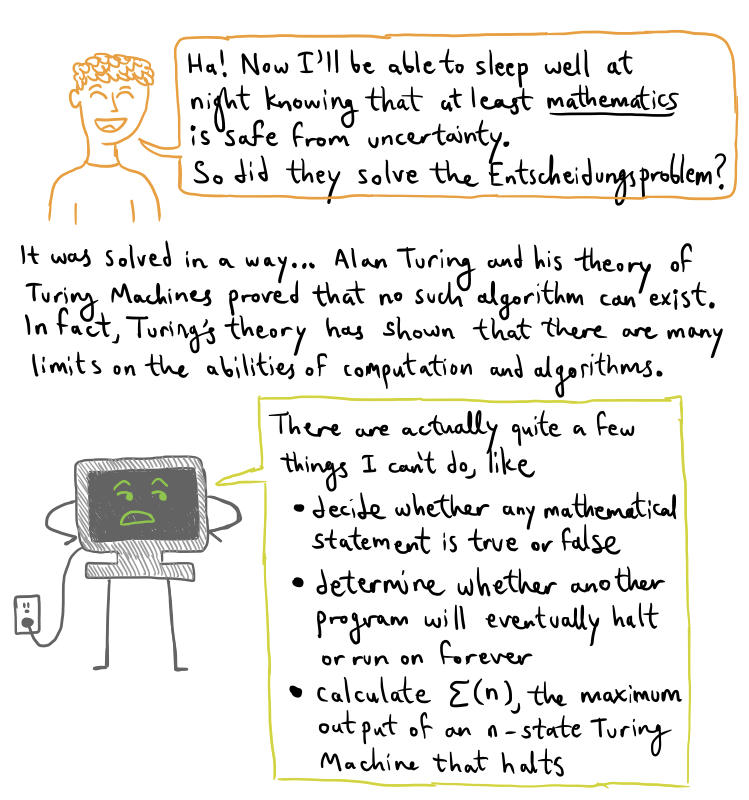 Ha! Now I'll be able to sleep well at
night knowing that at least mathematics
is safe from uncertainty.
So did they solve the Entscheidungsproblem?
It was solved in a way... Alan Turing and his theory of
Turing Machines proved that no such algorithm can exist.
In fact, Turing's theory has shown that there are many
limits on the abilities of computation and algorithms.
There are actually quite a few
things I can't do, like
• decide whether any mathematical
statement is true or false
• determine whether another
program will eventually halt
or run on forever
• calculate Σ(n), the maximum
output of an n-state Turing
Machine that halts